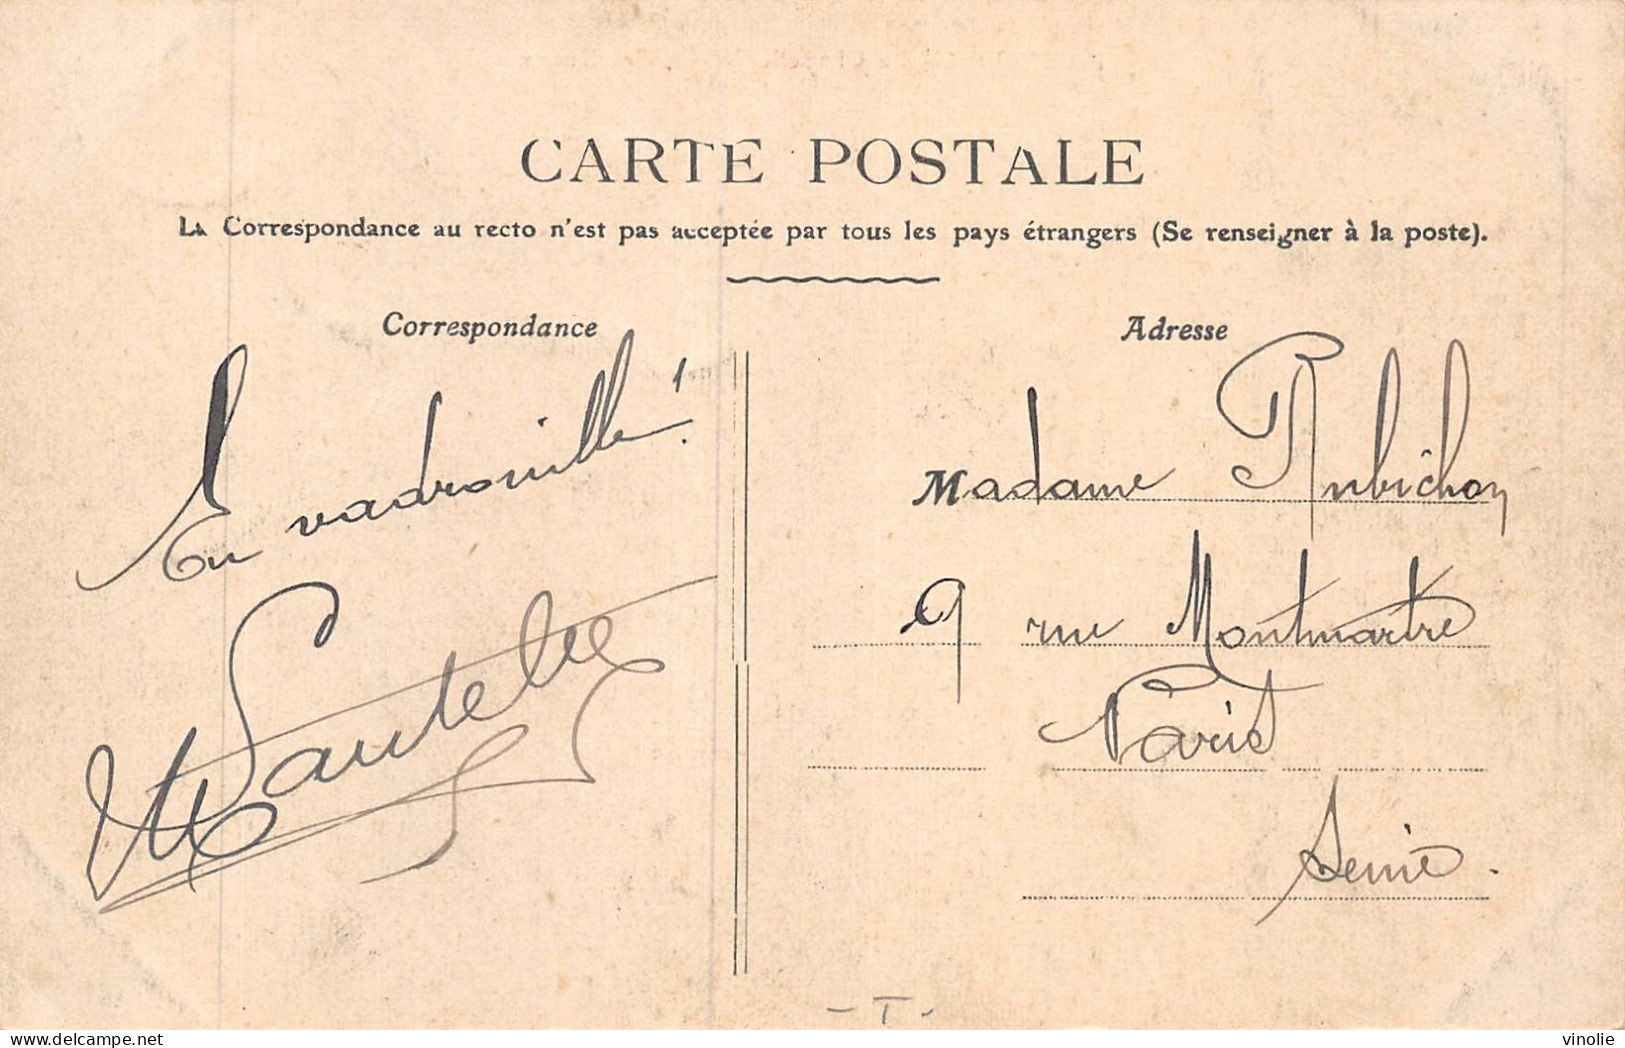 CARTE POSTALE
La Correspondance au recto n'est pas acceptée par tous les pays étrangers (Se renseigner à la poste).
Correspondance
En vadrouille!
Adresse
Madame Rubichon
9 rue Montmartre
Paris
Seine.
- T -
delcampe.net
vinolie